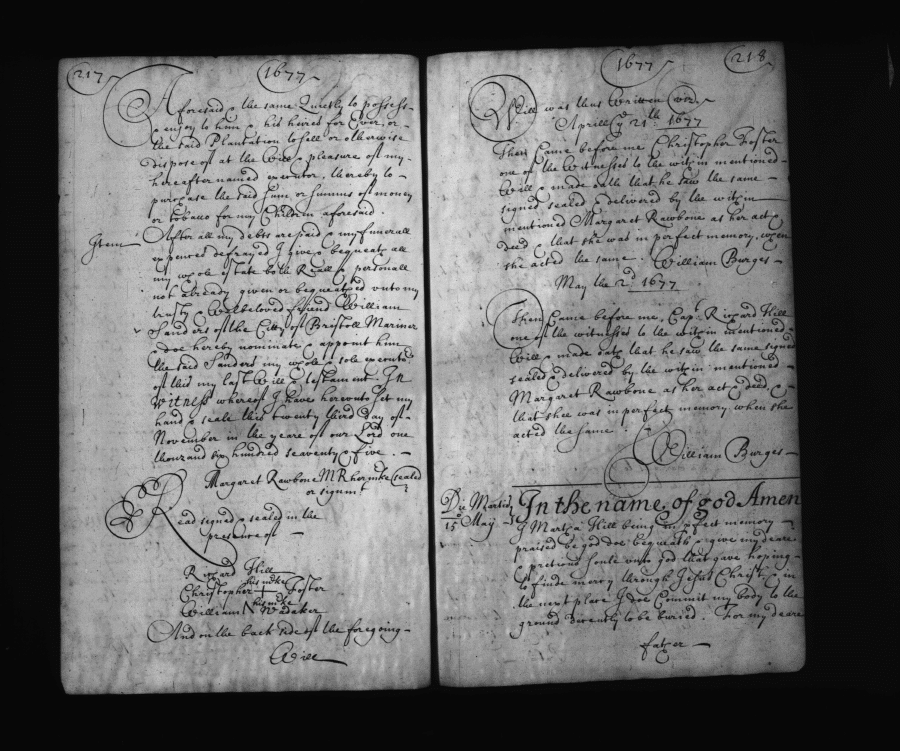 217 1677
Aforesaid & the same Quietly to possess
& enjoy to him & his heires for Ever, or
the said Plantation to sell or otherwise
dispose of at the Will & pleasure of my
hereafter named executor, thereby to
purchase the said sum or summs of money
or tobacco for my Children aforesaid.
Item After all my debts are paid & my funerall
expences defrayed I give & bequeath all
my whole estate both Reall & personall
not already given or bequeathed unto my
trusty & Welbeloved friend William
Sanders of the Citty of Bristoll Mariner
& doe hereby nominate & appoint him
the said Sanders my whole & sole executor
of this my last Will & testament. In
Witness whereof I have hereunto set my
hand & seale this twenty third day of
November in the yeare of our Lord one
thouzand six hundred seaventy & five.
Margaret Rawbone MR her mke sealed
or signum
Read signed & sealed in the
presence of
Richard Hill
Christopher his mke Foster
William his mke
And on the back side of the foregoing
Will
1677 218
Will was thus Written Viz
Aprill ye 21th 1677
Then Came before me Christopher Foster
one of the Witnesses to the within mentioned
Will & made oath that he saw the same
signed sealed & delivered by the within
mentioned Margaret Rawbone as her act &
deed & that she was in perfect memory when
she acted the same. William Burges
May the 2d 1677
Then Came before me, Capt Richard Hill
one of the witnesses to the within mentioned
Will & made oath that he saw the same signed
sealed & delivered by the within mentioned
Margaret Rawbone as her act & deed, &
that shee was in perfect memory when she
acted the same.
William Burges
Die Martis In the name of god Amen
15 May I Martha Hill being in perfect memory
praised be god doe bequeath & give my deare
& pretious soule unto god that gave hoping
to finde mercy through Jesus Christ, & in
the next place I doe Commit my body to the
ground decently to be buried. For my deare
father